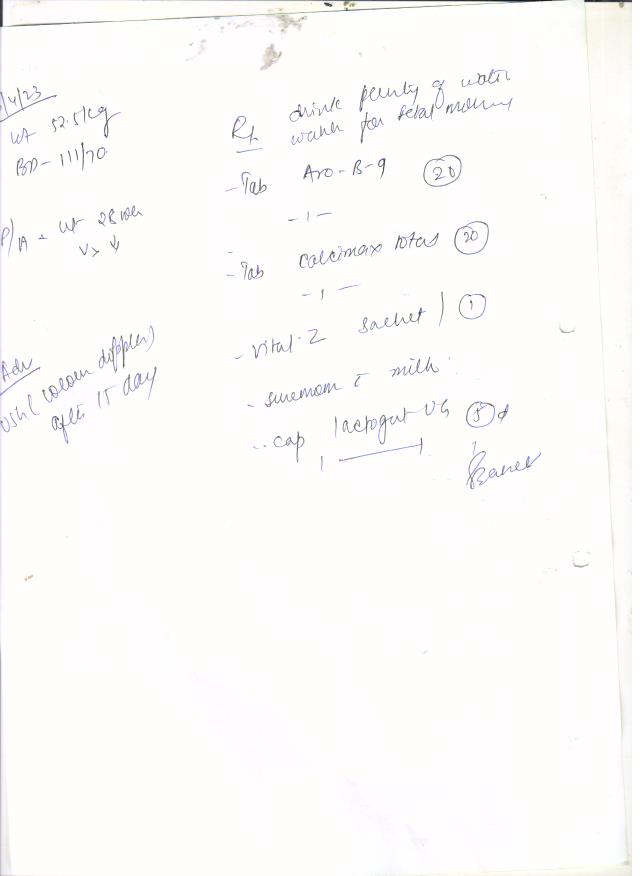 /4/23
wt 52.5 kg
BP - 111/70
P/A - ut 28 wk
Adv
USG (colour doppler)
after 15 day
Rx drink plenty of water
watch for fetal moving
- Tab Aro-B-9 (20)
- 1 -
- Tab Calcimax total (20)
- 1 -
- Vital-Z sachet / (1)
- suremom c milk
- cap lactogut-VG (5)
1 — 1